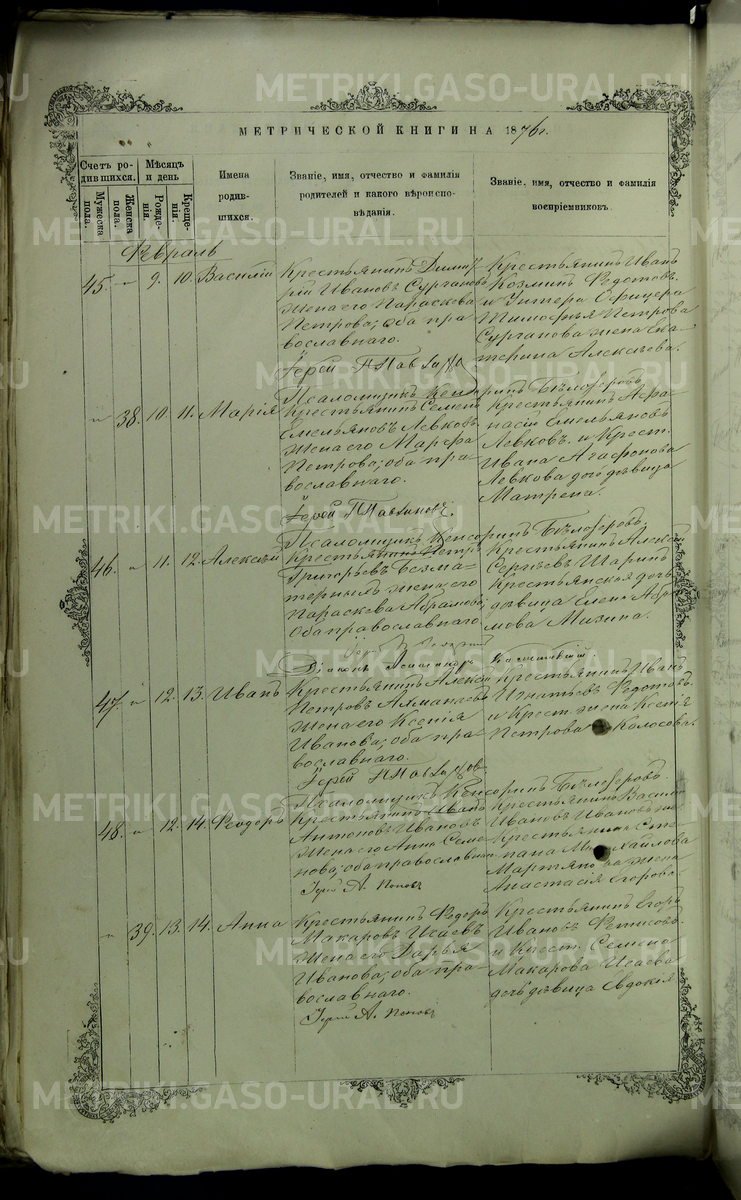 METRIKI.GASO-URAL.RU
МЕТРИЧЕСКОЙ КНИГИ НА 1876 г.
Счетъ родившихся.
Мужеска пола.
Женска пола.
Мѣсяцъ и день
Рожденія.
Крещенія.
Имена
родив-
шихся.
Званіе, имя, отчество и фамилія
родителей и какого вѣроиспо-
вѣданія.
Званіе, имя, отчество и фамилія
воспріемниковъ.
Февраль
45. " 9. 10. Василій
Крестьянинъ Димит
рій Ивановъ Сургановъ
жена его Параскева
Петрова; оба пра-
вославнаго.
Крестьянинъ Иванъ
Козминъ Федотовъ.
и Унтеръ Офицера
Тимофья Петрова
Сурганова жена Ека
терина Алексѣева.
Іерей
Псаломщикъ Кенсоринъ Бѣлозеровъ
" 38. 10. 11. Марія
Крестьянинъ Семенъ
Емельяновъ Левковъ.
жена его Марфа
Петрова; оба пра-
вославнаго.
Крестьянинъ Афа
насій Емельяновъ
Левковъ. и Крест.
Ивана Агафонова
Левкова дочь дѣвица
Матрена.
Іерей
Псаломщикъ Кенсоринъ Бѣлозеровъ
46. " 11. 12. Алексѣй
Крестьянинъ Петръ
Григорьевъ Безма
терныхъ жена его
Параскева Абрамова;
Оба православнаго
Крестьянинъ Алексѣй
Сергѣевъ Шаринъ
Крестьянская дочь
дѣвица Елена Абра
мова Мизина.
Діаконъ
47. " 12. 13. Иванъ
Крестьянинъ Алексѣй
Петровъ Алмакаевъ
жена его Ксенія
Иванова; оба пра-
вославнаго.
Крестьянинъ Иванъ
Игнатьевъ Федотовъ.
и Крест. жена Ксенія
Петрова Колосова.
Іерей
Псаломщикъ Кенсоринъ Бѣлозеровъ
48. " 12. 14. Феодоръ
Крестьянинъ Иванъ
Антоновъ Ивановъ
жена его Анна Семе
нова; оба православнаго
Крестьянинъ Василій
Ивановъ Ивановъ же
Крестьянина Сте
пана Михайлова
Мартьянова жена
Анастасія Егорова
Іерей А. Поповъ
" 39. 13. 14. Анна
Крестьянинъ Федоръ
Макаровъ Исаевъ
жена его Дарья
Иванова; оба пра-
вославнаго.
Крестьянинъ Егоръ
Ивановъ Фетисовъ
и Крест. Семена
Макарова Исаева
дочь дѣвица Евдокія
Іерей А. Поповъ